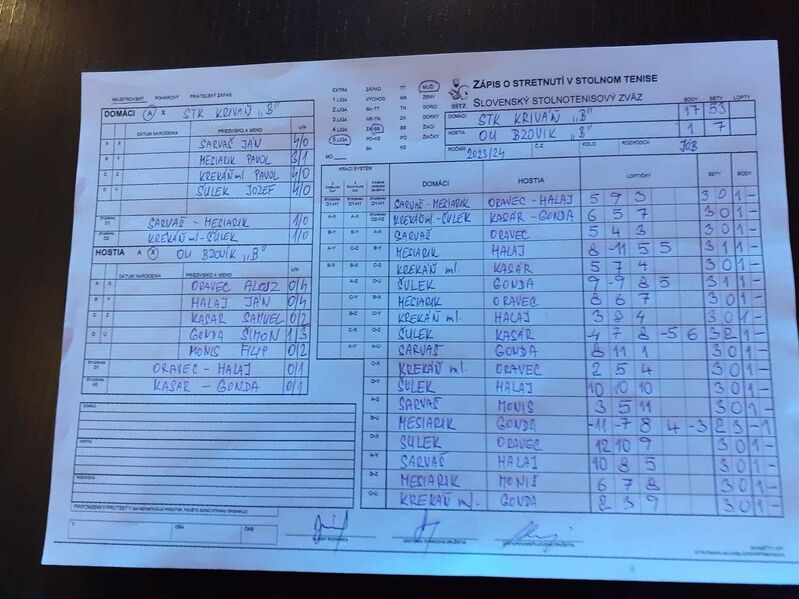 MAJSTROVSKÝ POHÁROVÝ PRIATEĽSKÝ ZÁPAS
DOMÁCI A X STK KRIVÁŇ „B"
DÁTUM NARODENIA PRIEZVISKO A MENO V/P
A X SARVAŠ JÁN 4/0
B Y MESIARIK PAVOL 3/1
C Z KREKÁŇ ml PAVOL 4/0
D U SÚLEK JOZEF 4/0
D1 SARVAŠ - MESIARIK 1/0
D2 KREKÁŇ ml - SÚLEK 1/0
HOSTIA A X OU BZOVÍK „B"
DÁTUM NARODENIA PRIEZVISKO A MENO V/P
A X ORAVEC ALOJZ 0/4
B Y HALAJ JÁN 0/4
C Z KASÁR SAMUEL 0/2
D U GONDA ŠIMON 1/3
MONIS FILIP 0/2
ORAVEC - HALAJ 0/1
KASÁR - GONDA 0/1
DOMÁCI
HOSTIA
EXTRA ZÁPAD TT MUŽI
1.LIGA VÝCHOD NR ŽENY
2.LIGA BA-TT TN DORCI
3.LIGA NR-TN ZA DORKY
4.LIGA ZA-BB BB ŽIACI
5.LIGA PO-KE PO ŽIAČKY
MO BA KE
SSTZ
ZÁPIS O STRETNUTÍ V STOLNOM TENISE
SLOVENSKÝ STOLNOTENISOVÝ ZVÄZ
BODY SETY LOPTY
DOMÁCI STK KRIVÁŇ „B" 17 53
HOSTIA OU BZOVÍK „B" 1 7
ROČNÍK 2023/24 Č.Z. KOLO ROZHODCA JOB
HRACÍ SYSTÉM DOMÁCI HOSTIA LOPTIČKY SETY BODY
D1-H1 D1-H1 D1-H1 SARVAŠ-MESIARIK ORAVEC-HALAJ 5 9 3 3 0 1 -
A-X D2-H2 KREKÁŇ ml.-SÚLEK KASÁR-GONDA 6 5 7 3 0 1 -
B-Y B-Y A-X SARVAŠ ORAVEC 5 4 3 3 0 1 -
A-Y C-Z B-Y MESIARIK HALAJ 8 -11 5 5 3 1 1 -
B-X B-X C-Z KREKÁŇ ml. KASÁR 5 7 4 3 0 1 -
A-Z D-U SÚLEK GONDA 9 -9 8 5 3 1 1 -
C-Y B-X MESIARIK ORAVEC 8 6 7 3 0 1 -
B-Z C-Y KREKÁŇ ml. HALAJ 3 8 4 3 0 1 -
C-X D-Z SÚLEK KASÁR -4 7 8 -5 6 3 2 1 -
A-Y A-U SARVAŠ GONDA 8 11 1 3 0 1 -
C-X KREKÁŇ ml. ORAVEC 2 5 4 3 0 1 -
D-Y SÚLEK HALAJ 10 10 10 3 0 1 -
A-Z SARVAŠ MONIS 3 5 11 3 0 1 -
B-U MESIARIK GONDA -11 -7 8 4 -3 2 3 - 1
D-X SÚLEK ORAVEC 12 10 9 3 0 1 -
A-Y SARVAŠ HALAJ 10 8 5 3 0 1 -
B-Z MESIARIK MONIS 6 7 8 3 0 1 -
C-U KREKÁŇ ml. GONDA 2 3 9 3 0 1 -
V DŇA ČAS